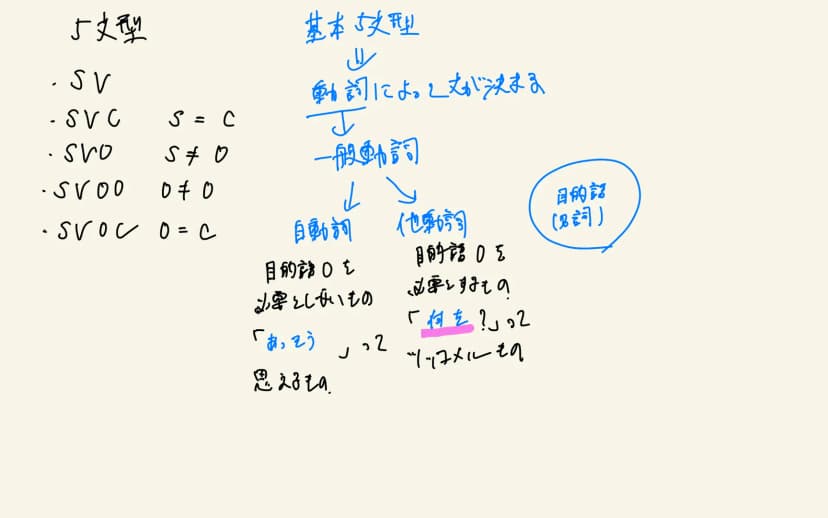 5文型
・SV
・SVC S = C
・SVO S ≠ O
・SVOO O ≠ O
・SVOC O = C
基本5文型
⇓
動詞によって文が決まる
↓
一般動詞
↓ ↘
自動詞
目的語Oを
必要としないもの
「あっそう 」って
思えるもの
他動詞
目的語Oを
必要とするもの
「何を?」って
ツッコメルもの
目的語
(名詞)